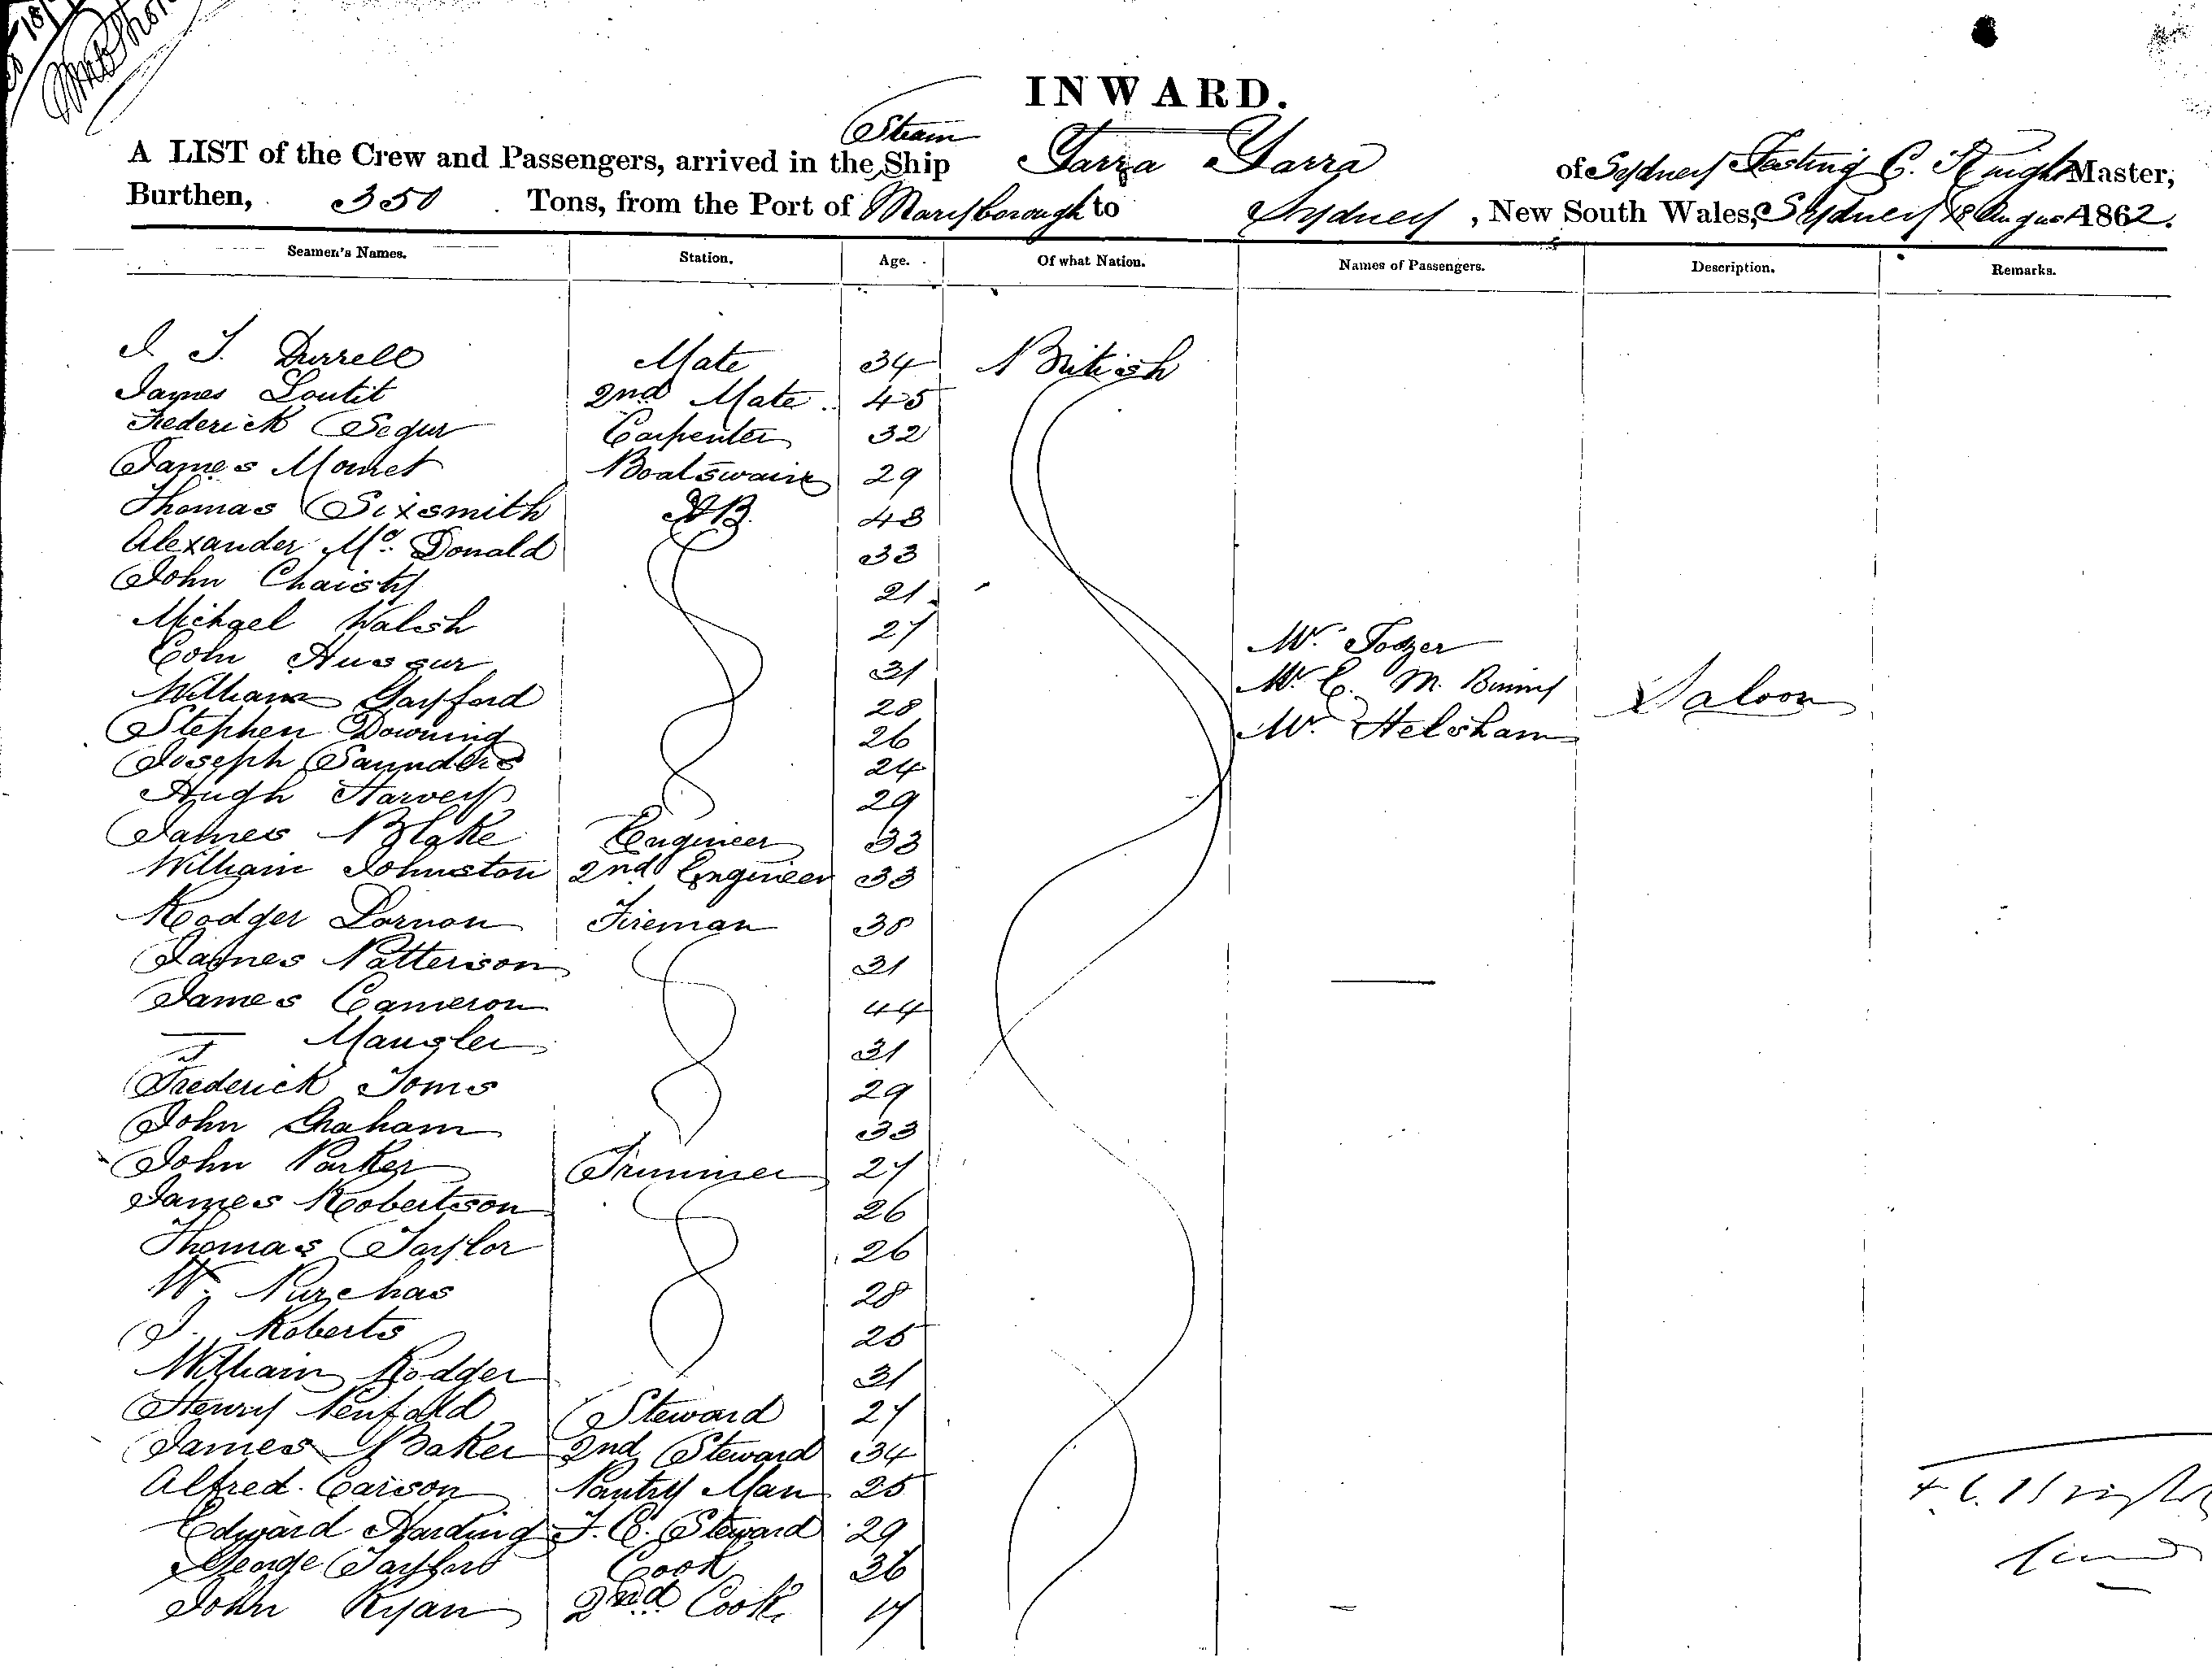 INWARD.
Steam
A LIST of the Crew and Passengers, arrived in the Ship Yarra Yarra of Sydney C. Knight Master,
Burthen, 350 Tons, from the Port of Maryborough to Sydney, New South Wales, Sydney 18 August 1862.
Seamen's Names. Station. Age. Of what Nation. Names of Passengers. Description. Remarks.
J. T. Durrell Mate 34 British
James Loutit 2nd Mate. 45
Frederick Segur Carpenter 32
James Mornet Boatswain 29
Thomas Sixsmith AB. 48
Alexander Mc. Donald 33
John Chaisty 21
Michael Walsh 27
Hussur 31
William Gayford 28
Stephen Downing 26
Joseph Saunders 24
Hugh Harvey 29
James Blake Engineer 33
William Johnston 2nd Engineer 33
Rodger Dornon Fireman 38
James Patterson 31
James Cameron 44
— Mangler 31
Frederick Toms 29
John Graham 33
John Parker Trimmer 27
James Robertson 26
Thomas Taylor 26
W. Purchas 28
J. Roberts 25
William Rodger 31
Henry Penfold Steward 27
James Baker 2nd Steward 34
Alfred. Carson Pantry Man 25
Edward Harding F. C. Steward 29
George Cook 36
John Ryan 2nd Cook 17
Mr. Toozer
Mr. C. M. Binny Saloon
Mr. Helsham